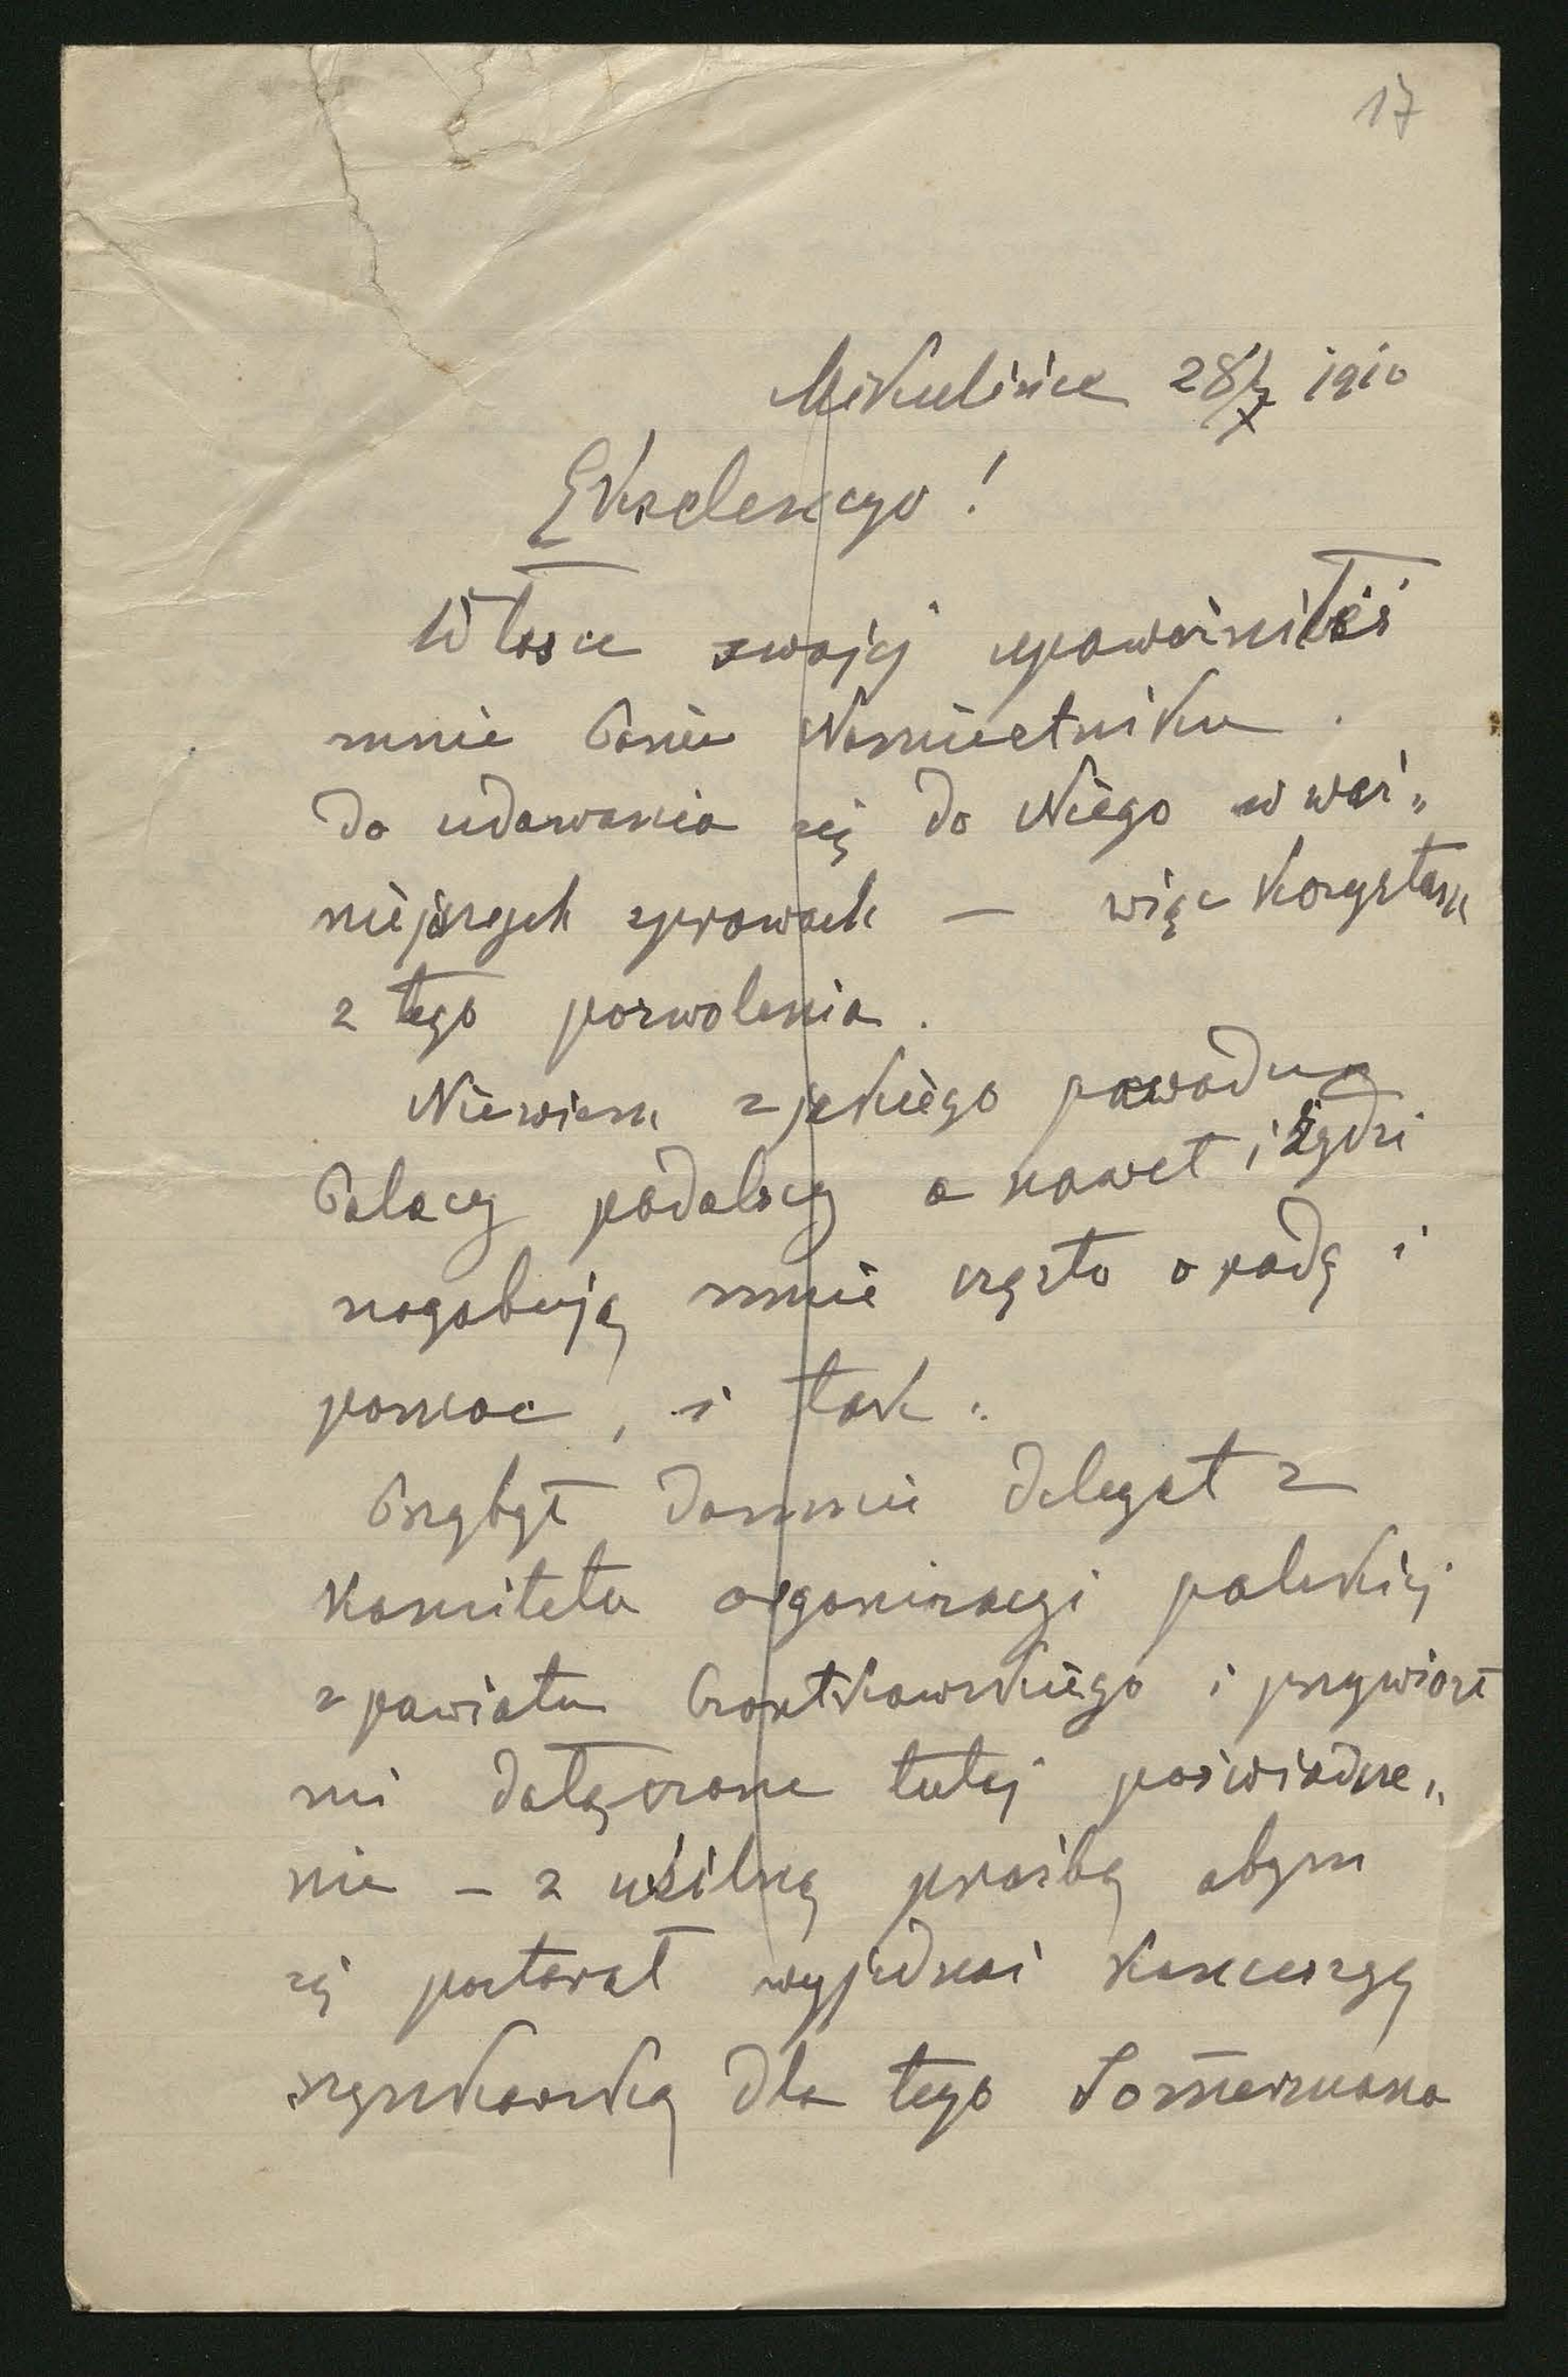 17
Mikulińce 28/X 1910
Ekscelencyo!
W łasce swojej upoważniłeś
mnie Panie Namiestniku
do udawania się do Niego w waż„
niejszych sprawach — więc korzystam
z tego pozwolenia.
Niewiem z jakiego powodu
Polacy podolscy a nawet i żydzi
nagabują mnie często o radę i
pomoc, i tak:
Przybył domnie delegat z
Komitetu organizacyi polskiej
z powiatu Czortkowskiego i przywiózł
mi dołączone tutej poświadcze„
nie – z usilną prośbą abym
się postarał wyjednać koncesyę
szynkarską dla tego Somermana